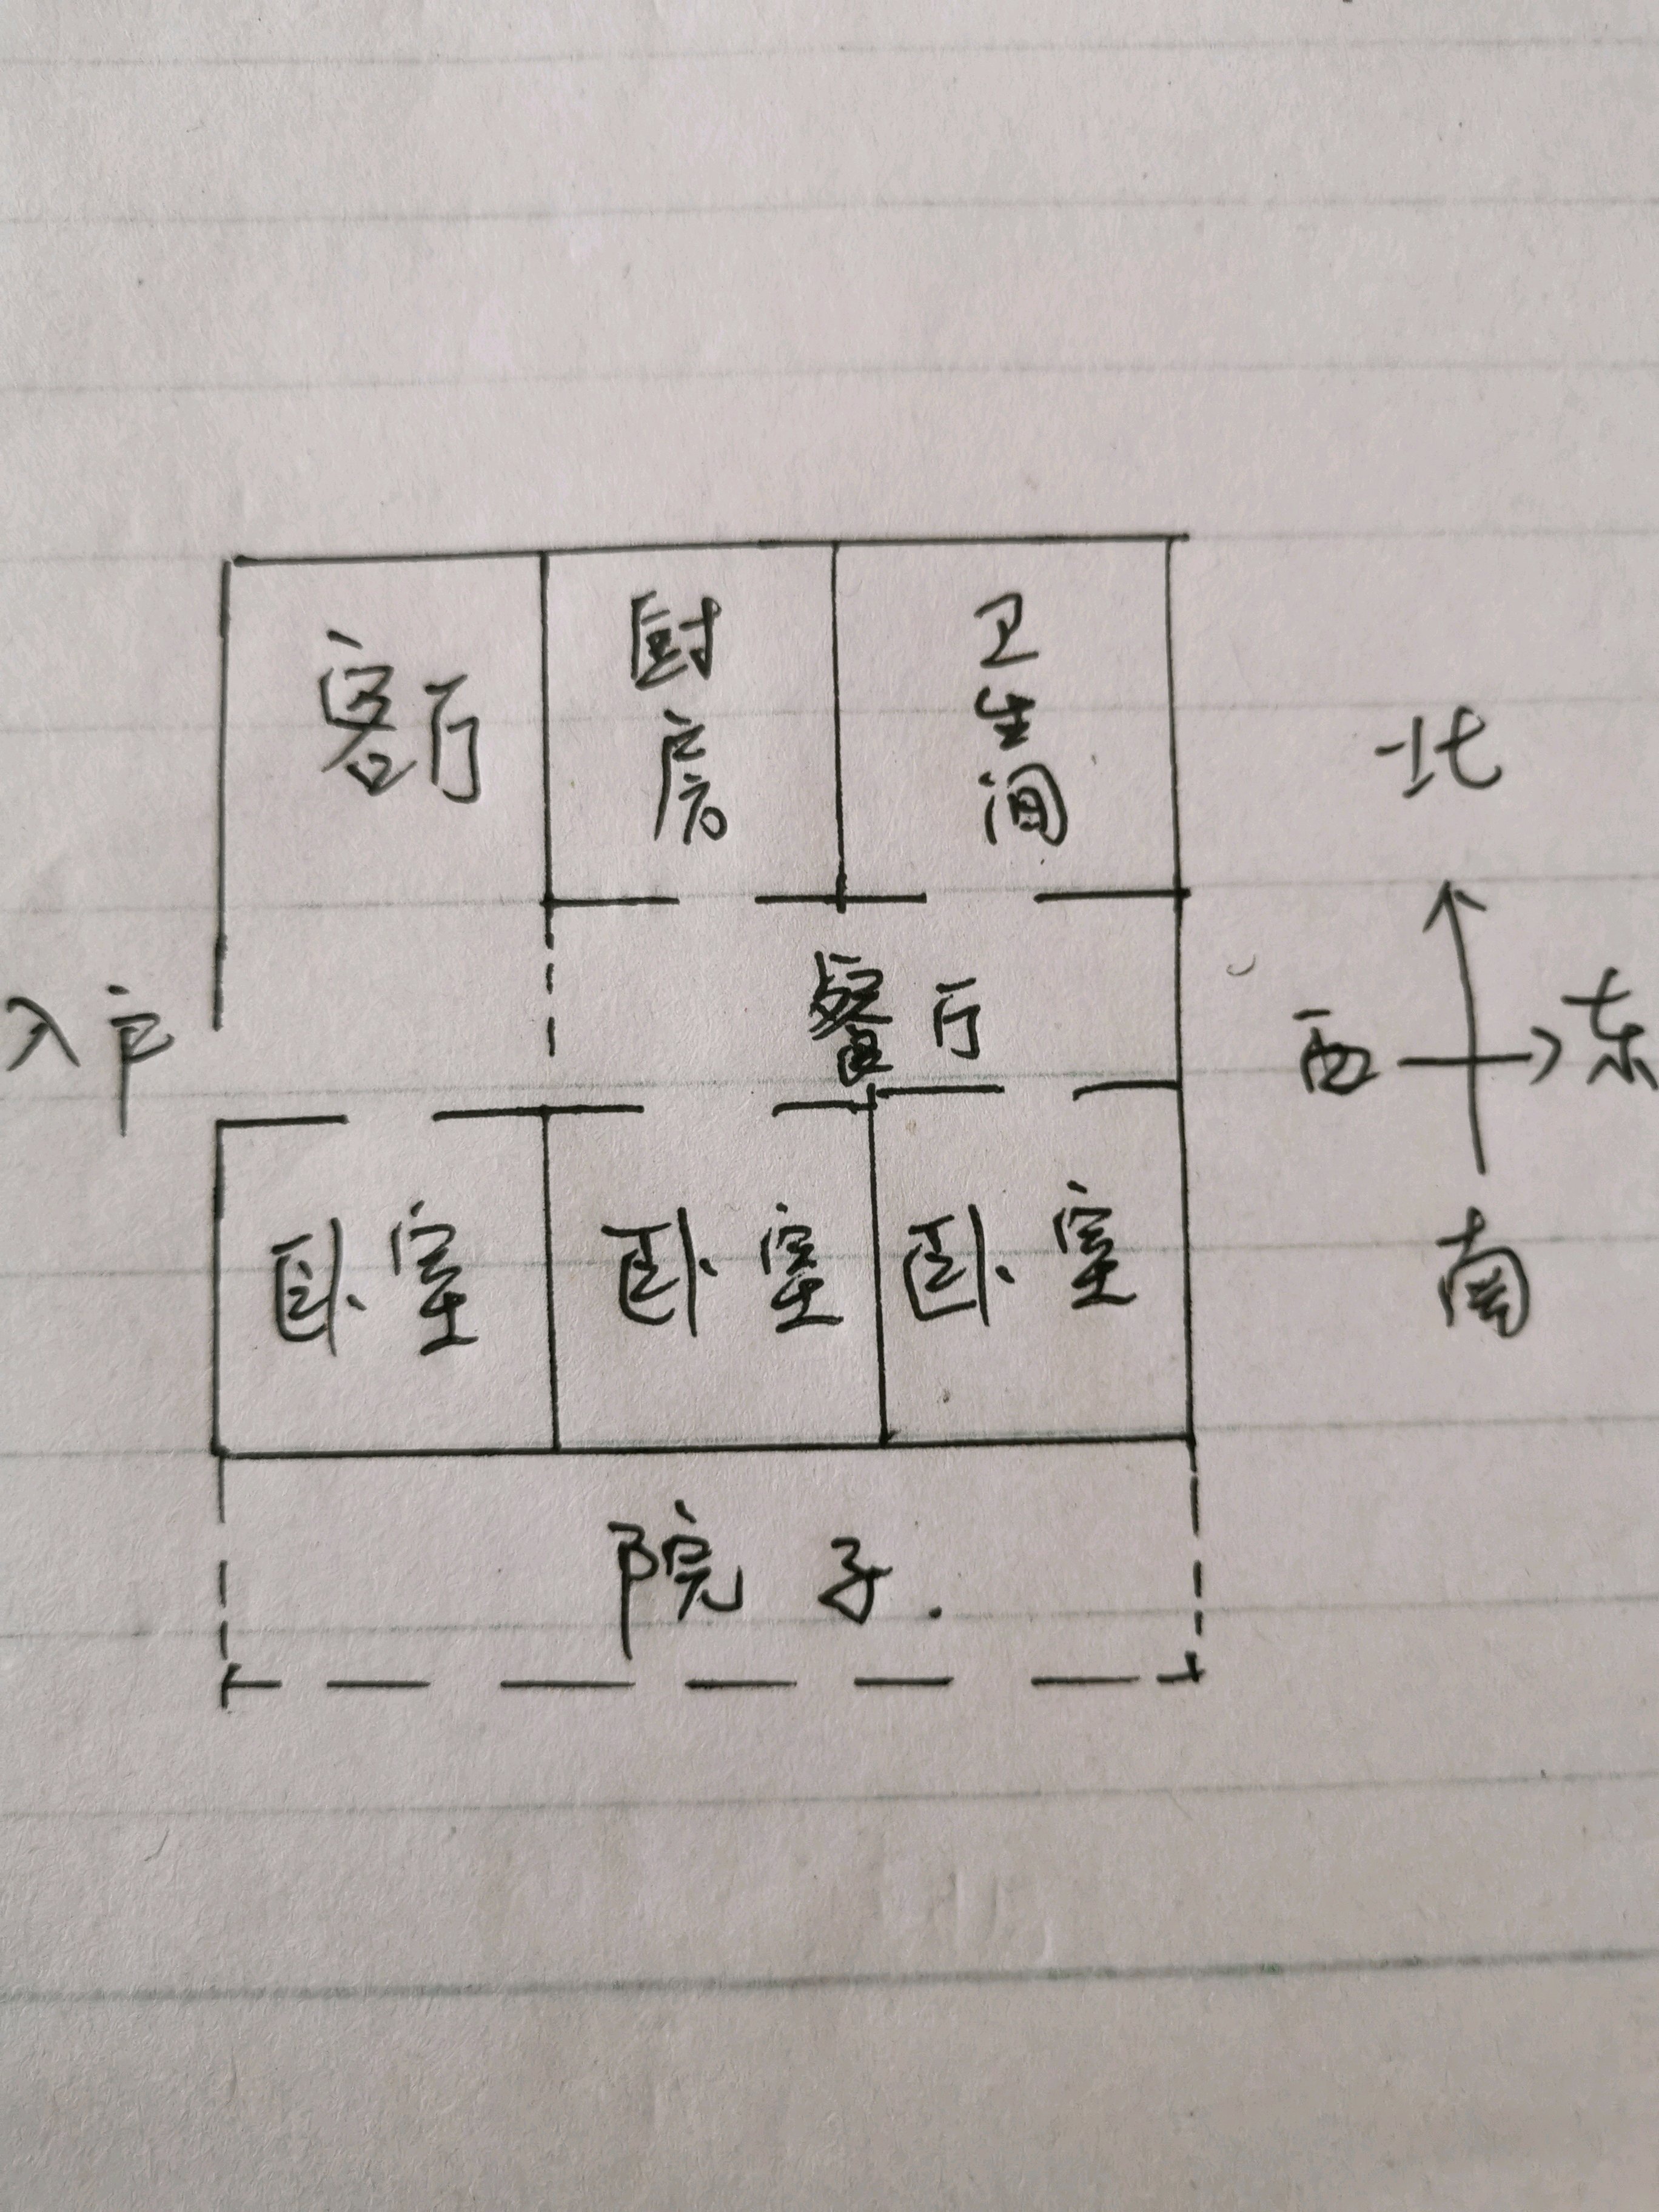 客厅
厨房
卫生间
北
入户
餐厅
西
东
卧室
卧室
卧室
南
院子.